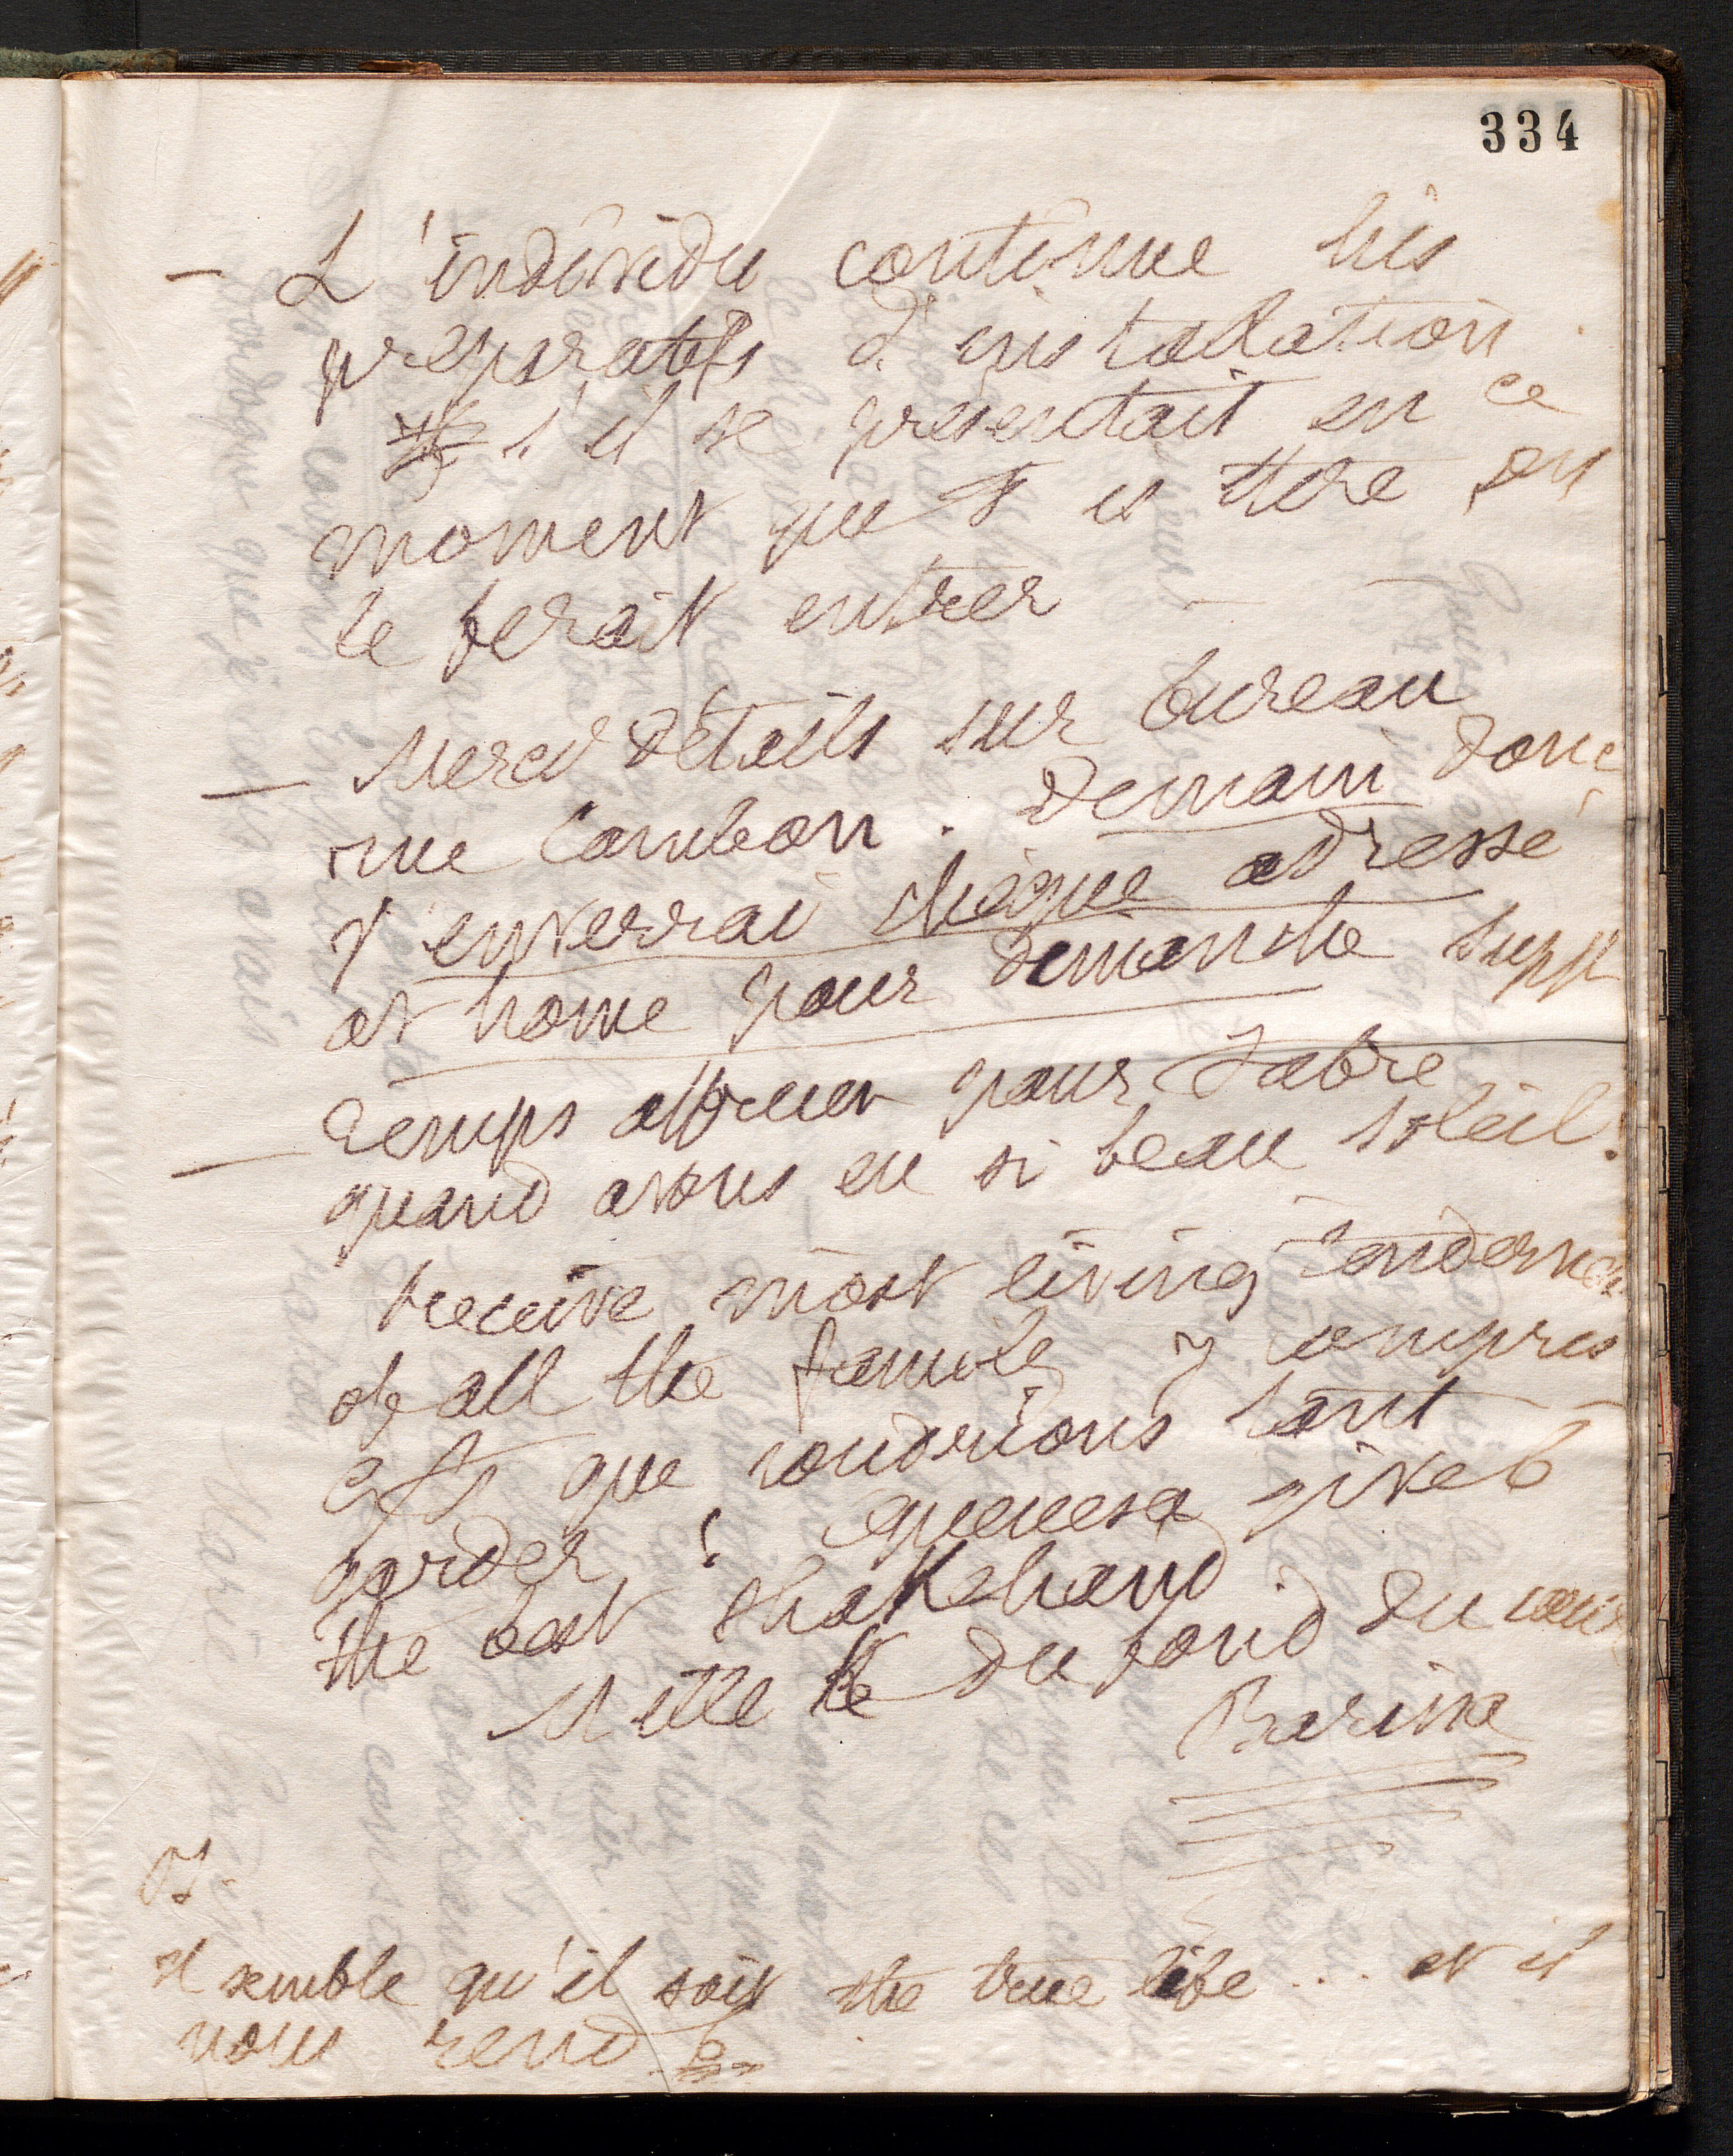 334
— L'individu continue his
preparatifs d'installation.
s'il se présentait en ce
moment que T is there on
le ferait entrer —
— Merci détails sur bureau
rue Cambon. Demain donc
t'enverrai chèque adressé
at home pour dimanche
— Temps affreux pour
quand avons eu si beau soleil!
receive most living
of all the family y compris
que voudrions tant
garder! gives
the best shakehand.
Mille du fond du cœur
PS.
Il semble qu'il soit the true life... et il
nous rend